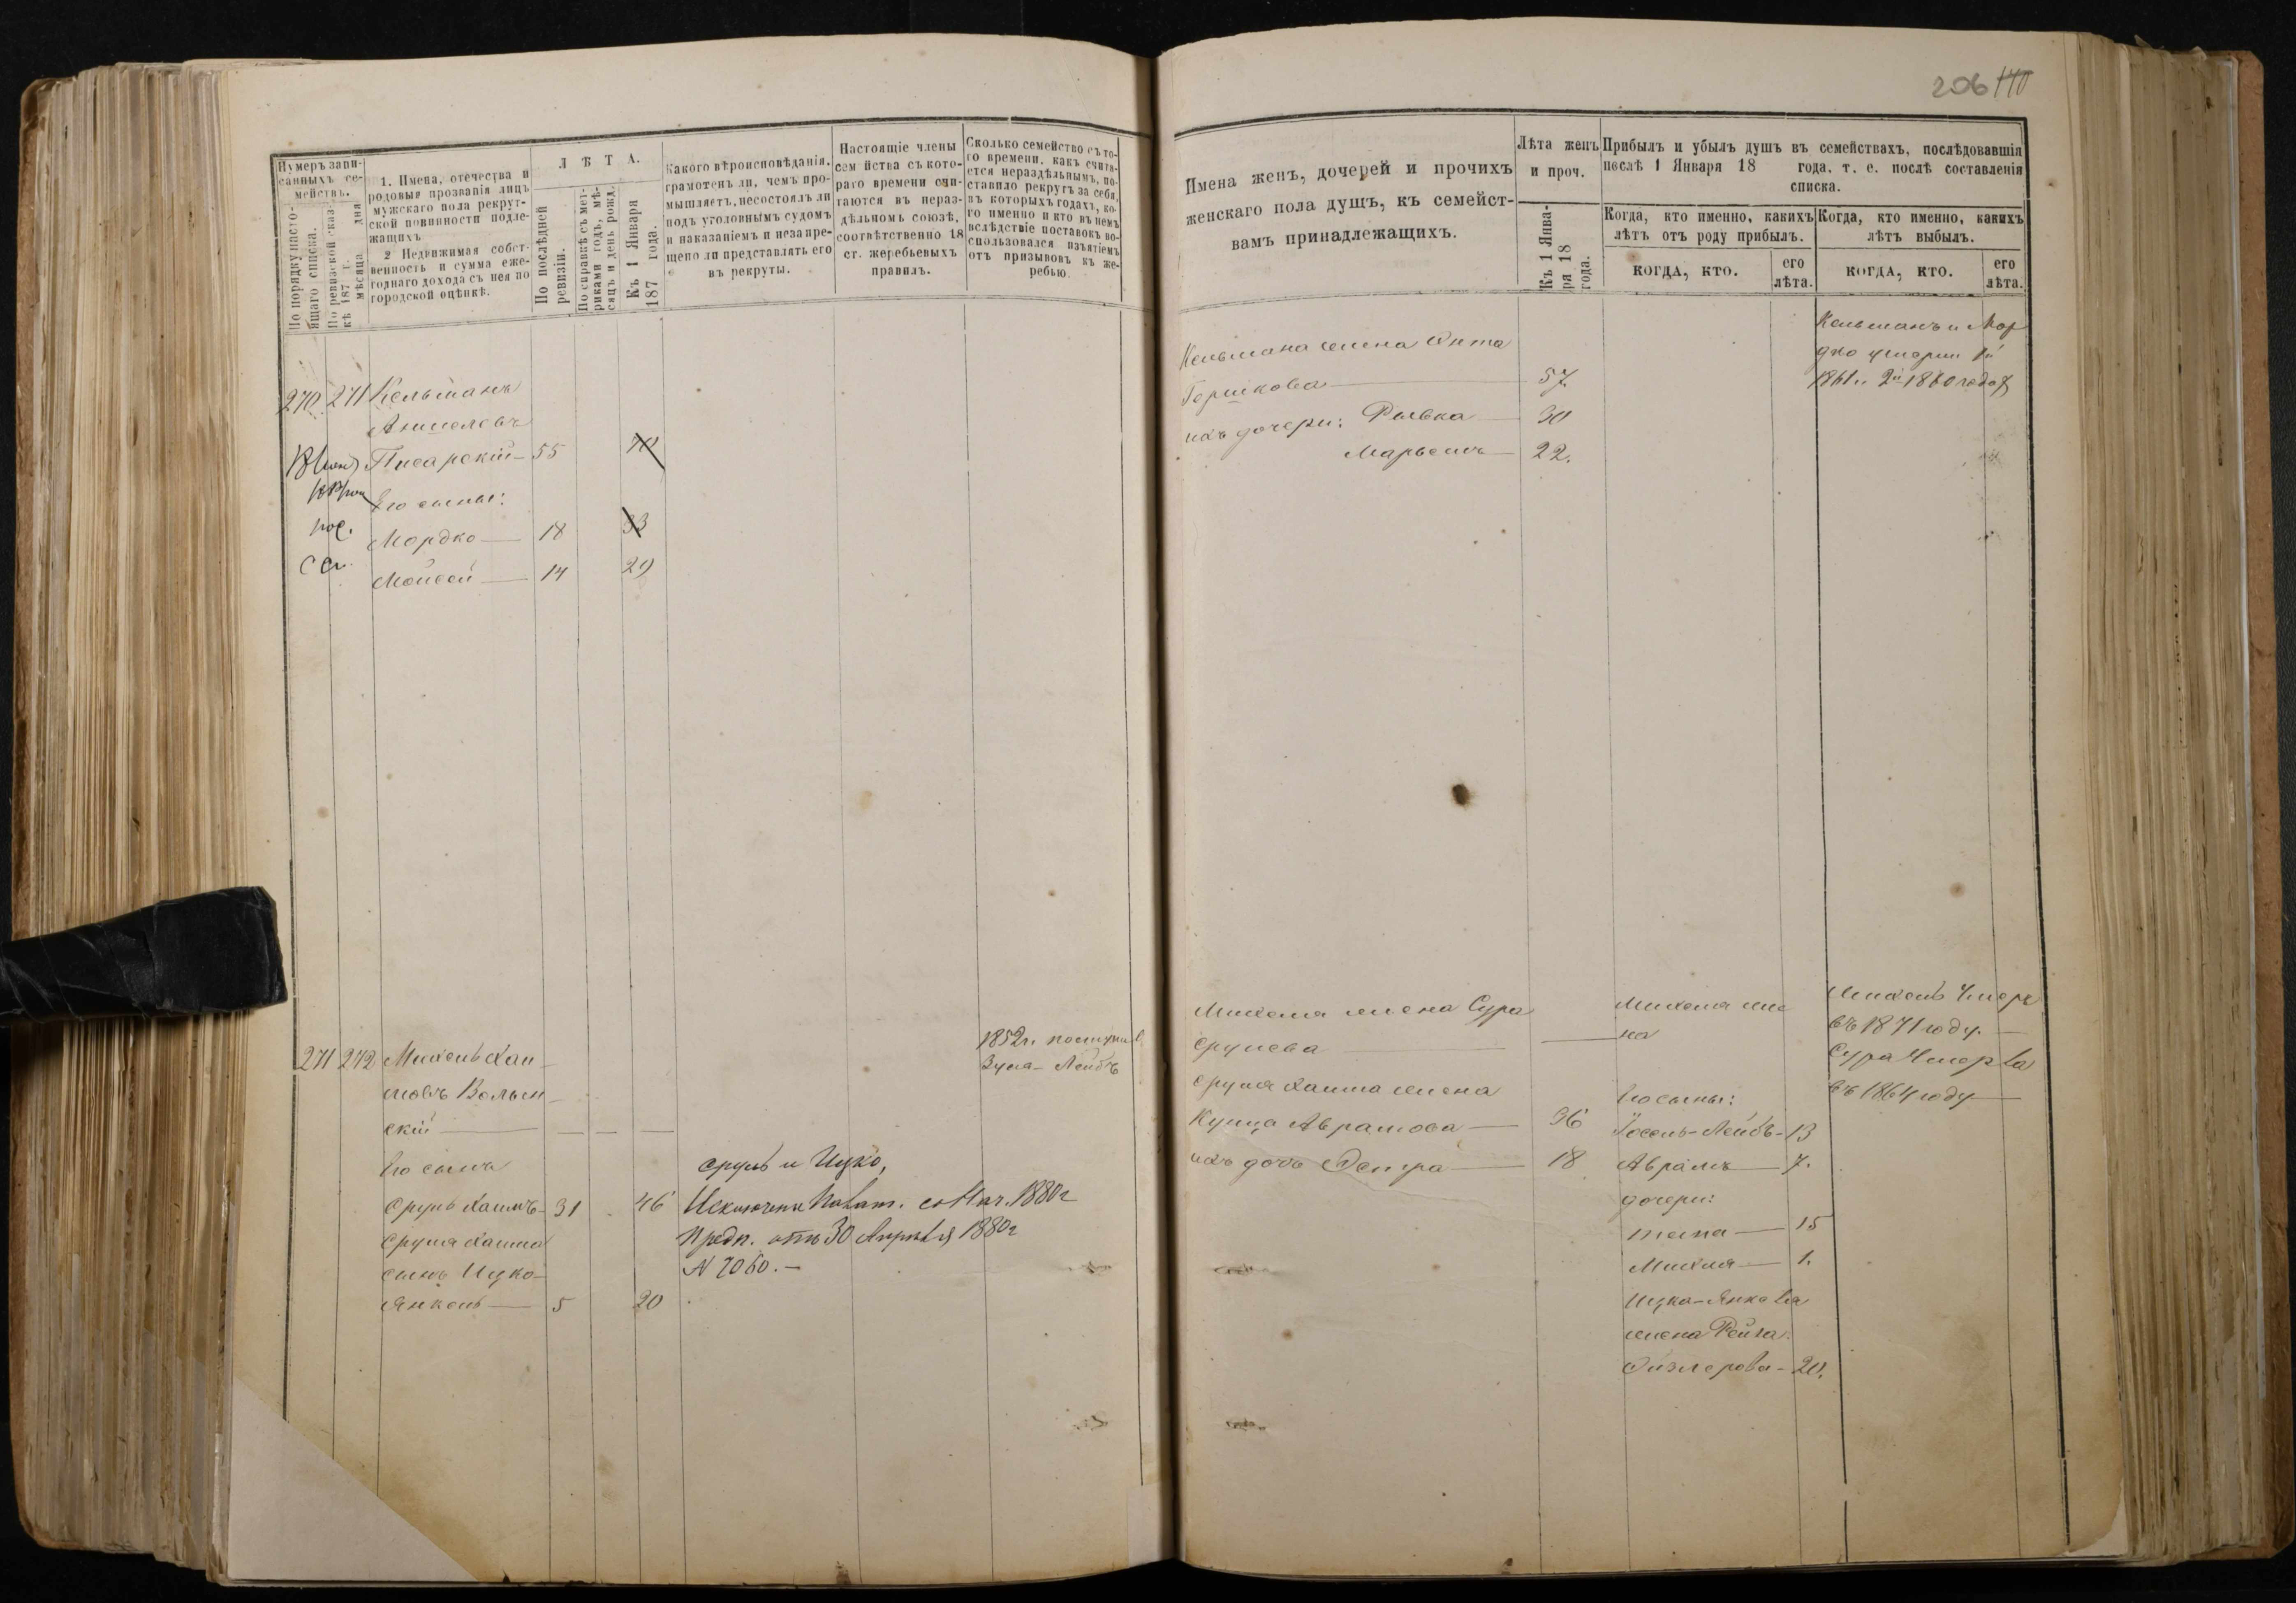 206 170
Нумеръ запи-
санныхъ се-
мействъ.
По порядку насто-
ящаго списка.
По ревизской сказ-
кѣ 187 г.
мѣсяца дня
1. Имена, отечества и
родовыя прозванія лицъ
мужскаго пола рекрут-
ской повинности подле-
жащихъ
2 Недвижимая собст-
венность и сумма еже-
годнаго дохода съ нея по
городской оцѣнкѣ.
ЛѢТА.
По послѣдней
ревизіи.
По справкѣ съ мет-
риками годъ, мѣ-
сяцъ и день рожд.
Къ 1 Января
187 года.
Какого вѣроисповѣданія.
грамотенъ ли, чемъ про-
мышляетъ, несостоялъ ли
подъ уголовнымъ судомъ
и наказаніемъ и незапре-
щено ли представлять его
въ рекруты.
Настоящіе члены
семйства съ кото-
раго времени счи-
таются въ нераз-
дѣльномъ союзѣ,
соотвѣтственно 18
ст. жеребьевыхъ
правилъ.
Сколько семейство съ то-
го времени, какъ счита-
ется нераздѣльнымъ, по-
ставило рекрутъ за себя,
въ которыхъ годахъ, ко-
го именно и кто въ немъ
вслѣдствіе поставокъ во-
спользовался изъятіемъ
отъ призывовъ къ же-
ребью.
270 271 Кельманъ
Аншелевъ
Писарскій 55 70
Его сыны:
Мордко 18 33
Мойсей 14 29
271 272 Михель Хаи-
мовъ Волын-
скій
Его сынъ
Сруль Хаимъ 31 46
Сруля Хаима
сынъ Ицко-
Янкель 5 20
Сруль и Ицко,
Исключены
1880г
Предп. отъ 30 Апрѣля 1880г
N 2060.
1852г. поступил
Лейбъ
Имена женъ, дочерей и прочихъ
женскаго пола душъ, къ семейст-
вамъ принадлежащихъ.
Лѣта женъ
и проч.
Къ 1 Янва-
ря 18
года.
Прибылъ и убылъ душъ въ семействахъ, послѣдовавшія
послѣ 1 Января 18 года. т. е. послѣ составленія
списка.
Когда, кто именно, какихъ
лѣтъ отъ роду прибылъ.
КОГДА, КТО.
его
лѣта.
Когда, кто именно, какихъ
лѣтъ выбылъ.
КОГДА, КТО.
его
лѣта.
Кельмана жена
Гершкова 57
ихъ дочери: Рывка 30
Марьемъ 22.
Кельманъ и Мор
дко умерли 1й
1861. 2й 1860 года
Михеля жена Сура
Срулева
Сруля Хаима жена
Авраамова 36
ихъ дочь Эстра 18
Михеля же
на
Его сыны:
Іосель-Лейбъ 13
Абрамъ 7.
дочери:
15
Михля 1.
Ицка-Янкеля
жена Рейза
20.
Михель умеръ
въ 1871 году.
Сура умерла
въ 1864 году